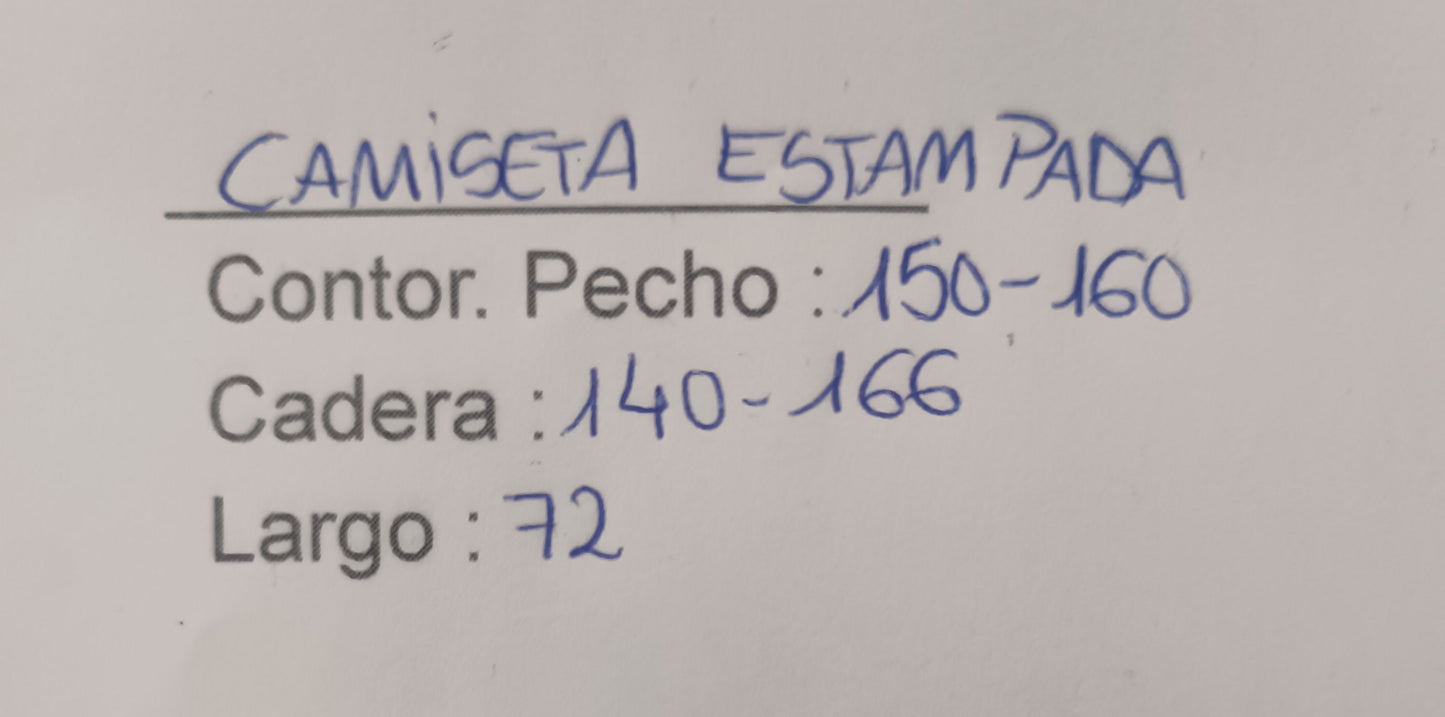 CAMISETA ESTAMPADA
Contor. Pecho : 150-160
Cadera : 140-166
Largo : 72